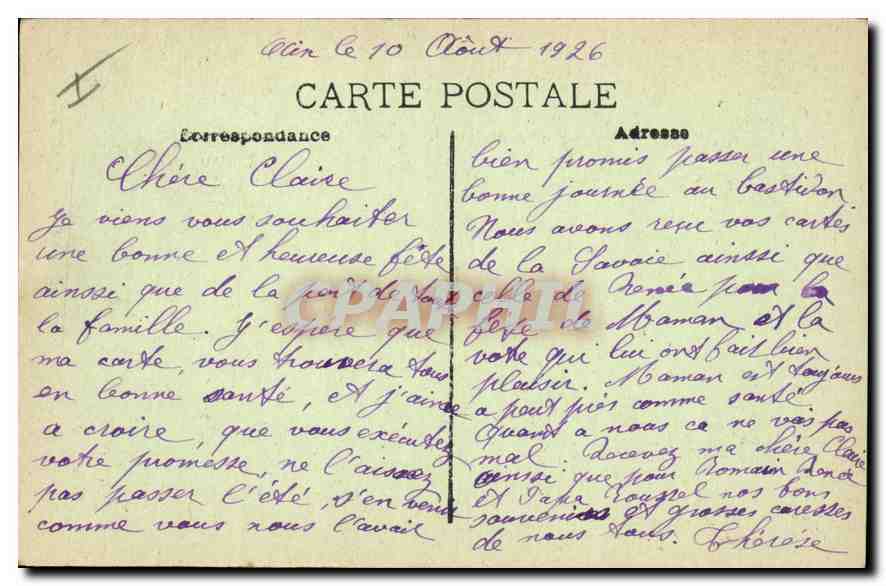 le 10 Août 1926
CARTE POSTALE
Correspondance
Chére Claire
Je viens vous souhaiter
une bonne et heureuse fête
ainssi que de la part de tous
la famille. J'espère que
ma carte, vous trouvera tous
en bonne santé, et j'aime
a croire, que vous exécutez
votre promesse, ne l'aissez
pas passer l'été, s'en venir
comme vous nous l'avait
Adresse
bien promis passer une
bonne journée au bastidon
Nous avons reçu vos cartes
de la Savoie ainssi que
celle de Renée pour la
fête de Maman et la
votre qui lui ont fait bien
plaisir. Maman est toujours
a peut près comme santé.
Quant a nous ca ne vas pas
mal. Recevez ma chère Claire
ainssi que pour Romain Renée
et Papa Roussel nos bons
souvenirs et grosses caresses
de nous tous. Thérése
CPAPHIL